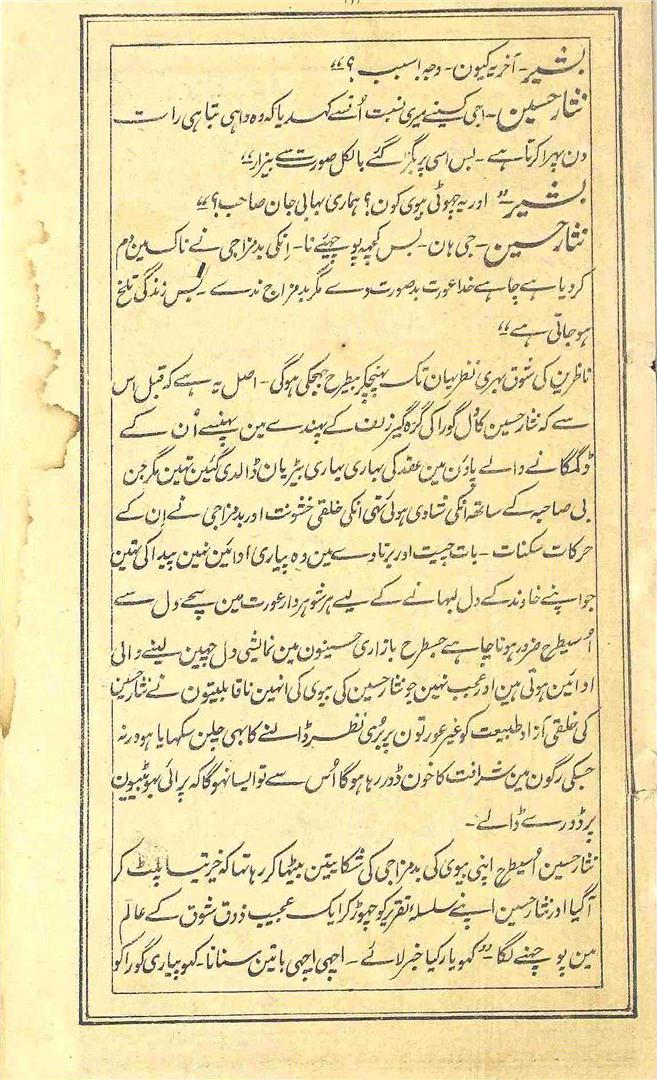 بشیر۔ آخر یہ کیون۔ وجہ؟ سبب؟“
نثار حسین۔ اجی کسینے میری نسبت اُنسے کہدیا کہ وہ واہی تباہی رات
دن پھرا کرتا ہے۔ بس اسی پر بگڑ گئے بالکل صورت سے بیزار“
بشیر۔ ”اور یہ چھوٹی بیوی کون؟ ہماری بھابی جان صاحب؟“
نثار حسین۔ جی ہان۔ بس کچھ پوچھیے نا۔ اِنکی بدمزاجی نے ناک مین دم
کردیا ہے چاہے خدا عورت بدصورت دے مگر بدمزاج ندے۔ بس زندگی تلخ
ہوجاتی ہے“
ناظرین کی شوق بھری نظر یہان تک پہنچکر بیطرح جھجکی ہوگی۔ اصل یہ ہے کہ قبل اس
سے کہ نثار حسین کا دل گورا کی گرہ گیر زلف کے پھندے مین پھنسے اُن کے
ڈگمگانے والے پاؤن مین عقد کی بھاری بھاری بیڑیان ڈالدی گئین تھین مگر جن
بی صاحبہ کے ساتھ انکی شادی ہوئی تھی انکی خلقی خشونت اور بدمزاجی نے اِن کے
حرکات سکنات۔ بات چیت اور برتاوے مین وہ پیاری ادائین نہین پیدا کی تھین
جو اپنے خاوند کے دل لبھانے کے لیے ہر شوہر دار عورت مین سچے دل سے
اُسیطرح ضرور ہونا چاہے جسطرح بازاری حسینون مین نمائشی دل چھین لینے والی
ادائین ہوتی ہین اور عجب نہین جو نثار حسین کی بیوی کی انہین ناقابلیتون نے نثار حسین
کی خلقی آزاد طبیعت کو غیر عورتون پر بُری نظر ڈالنے کا بھی چلن سکھایا ہو ورنہ
جسکی رگون مین شرافت کا خون دوڑ رہا ہوگا اُس سے تو ایسا نہوگا کہ پرائی بہو بٹیون
پر ڈورے ڈالے۔
نثار حسین اُسیطرح اپنی بیوی کی بدمزاجی کی شکایتین بیٹھا کر رہا تھا کہ خیرتیا پلٹ کر
آگیا اور نثار حسین اپنے سلسلۂ تقریر کو چھوڑ کر ایک عجیب ذوق شوق کے عالم
مین پوچھنے لگا۔ ”کہو یار کیا خبر لائے۔ اچھی اچھی باتین سنانا۔ کہو پیاری گورا کو